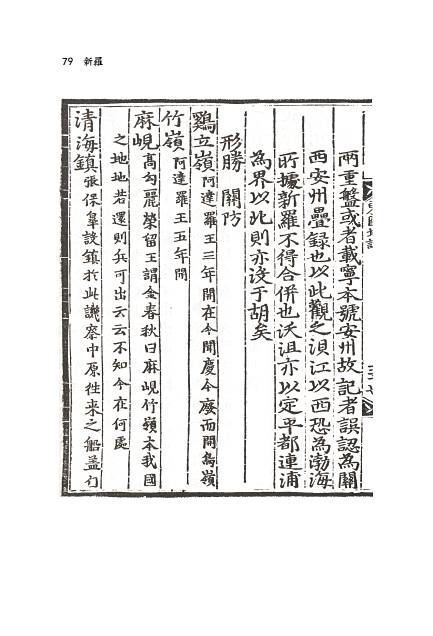 79 新羅
兩重盤或者載寧本號安州故記者誤認為關
西安州疊録也以此觀之浿江以西恐為渤海
所據新羅不得合併也沃沮亦以定平都連浦
為界以北則亦沒于胡矣
形勝 關防
鷄立嶺阿達羅王三年開在今聞慶今廢而開鳥嶺
竹嶺阿達羅王五年開
麻峴高勾麗榮留王謂金春秋曰麻峴竹嶺本我國
之地地若還則兵可出云云不知今在何處
清海鎮張保皐設鎮於此譏察中原徃来之船盖